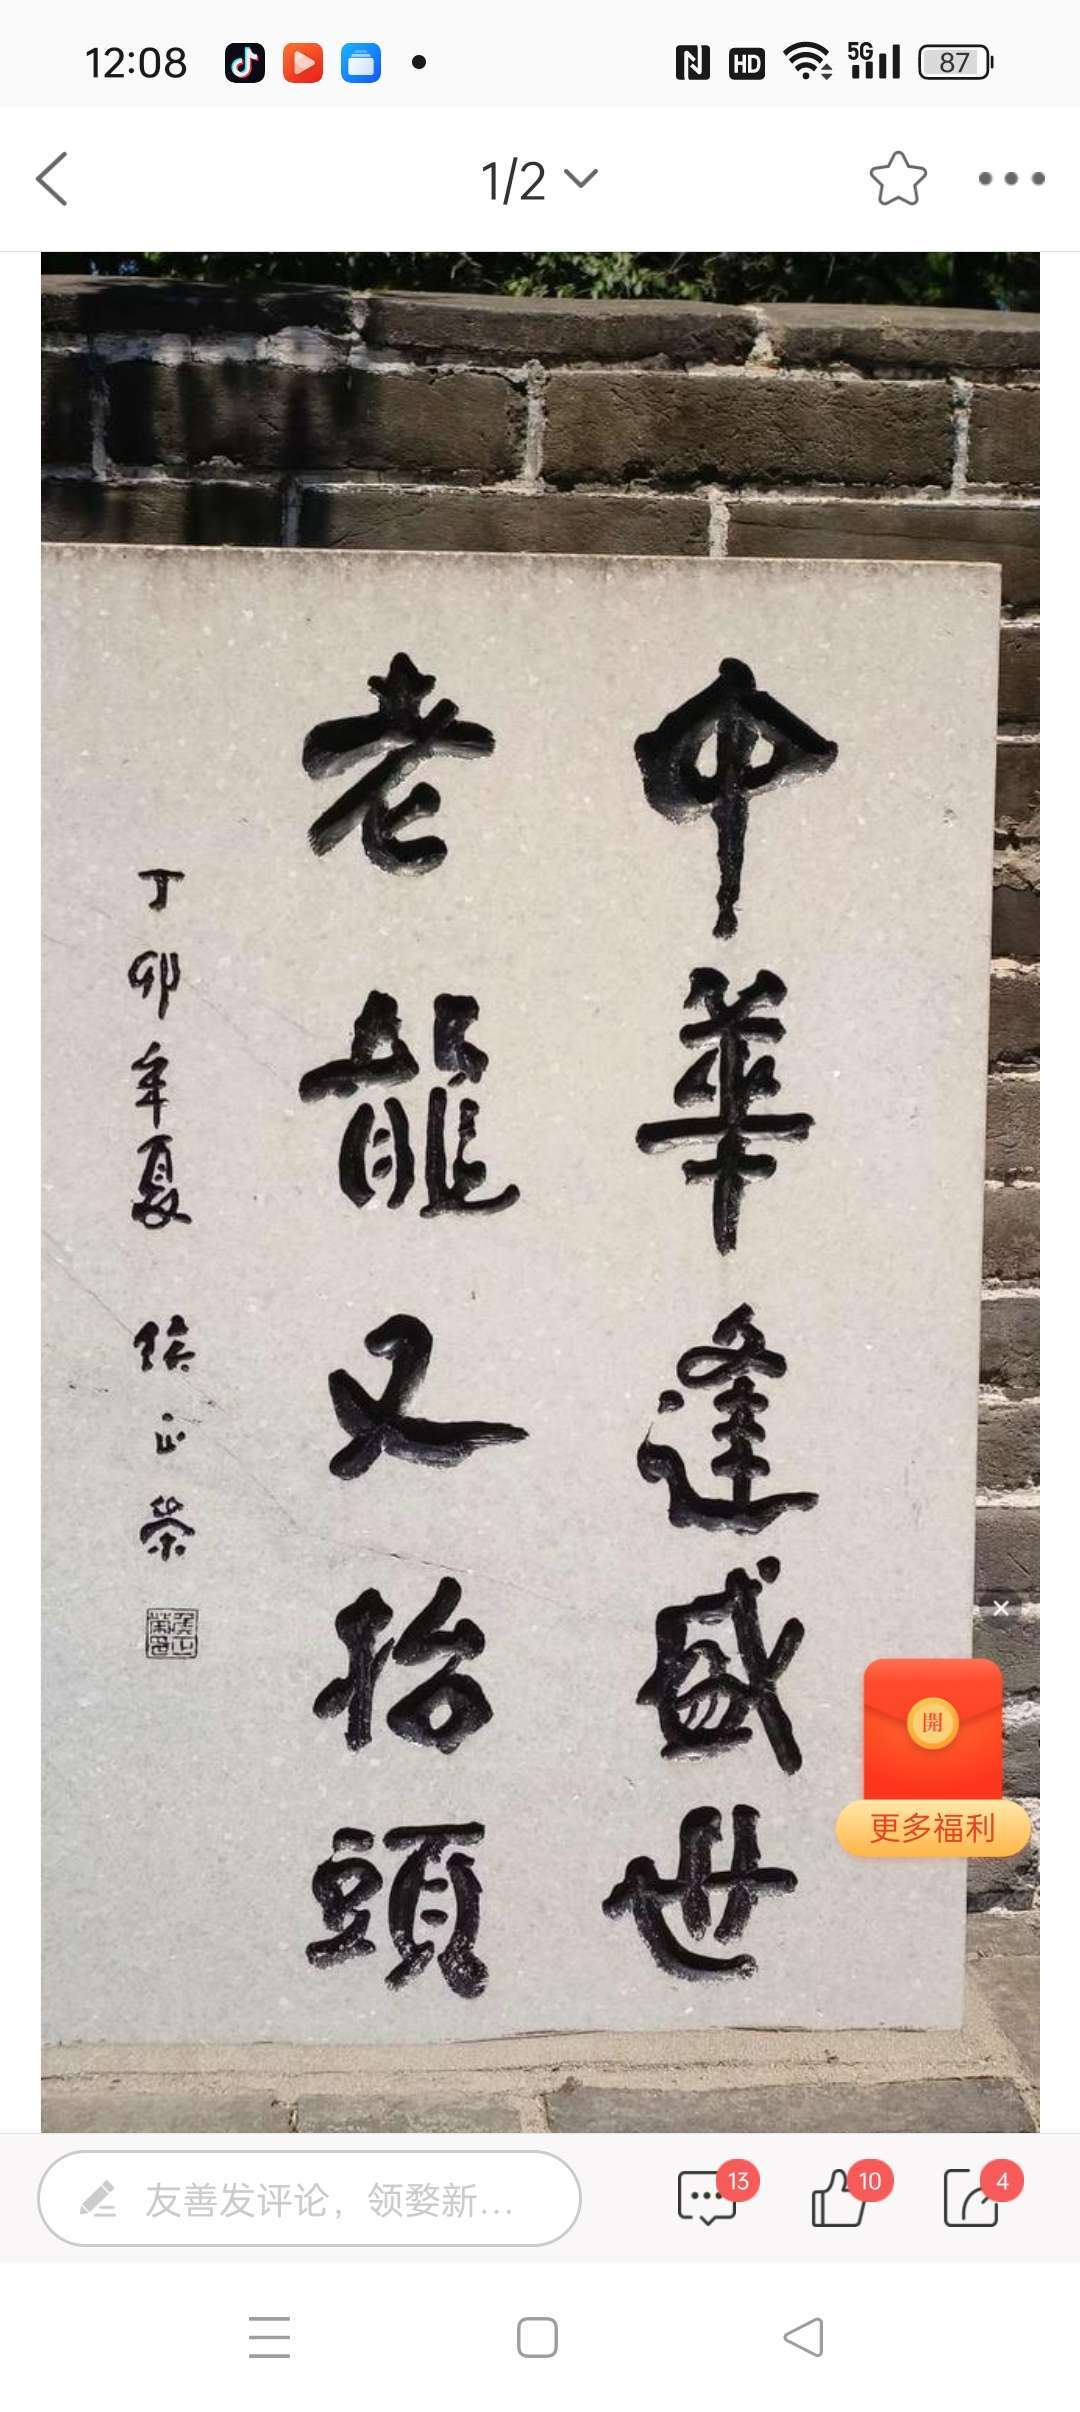 12:08
HD
5G
87
1/2
中華逢盛世
老龍又抬頭
丁卯年夏
侯正榮
開
更多福利
友善发评论，领婺新...
13
10
4